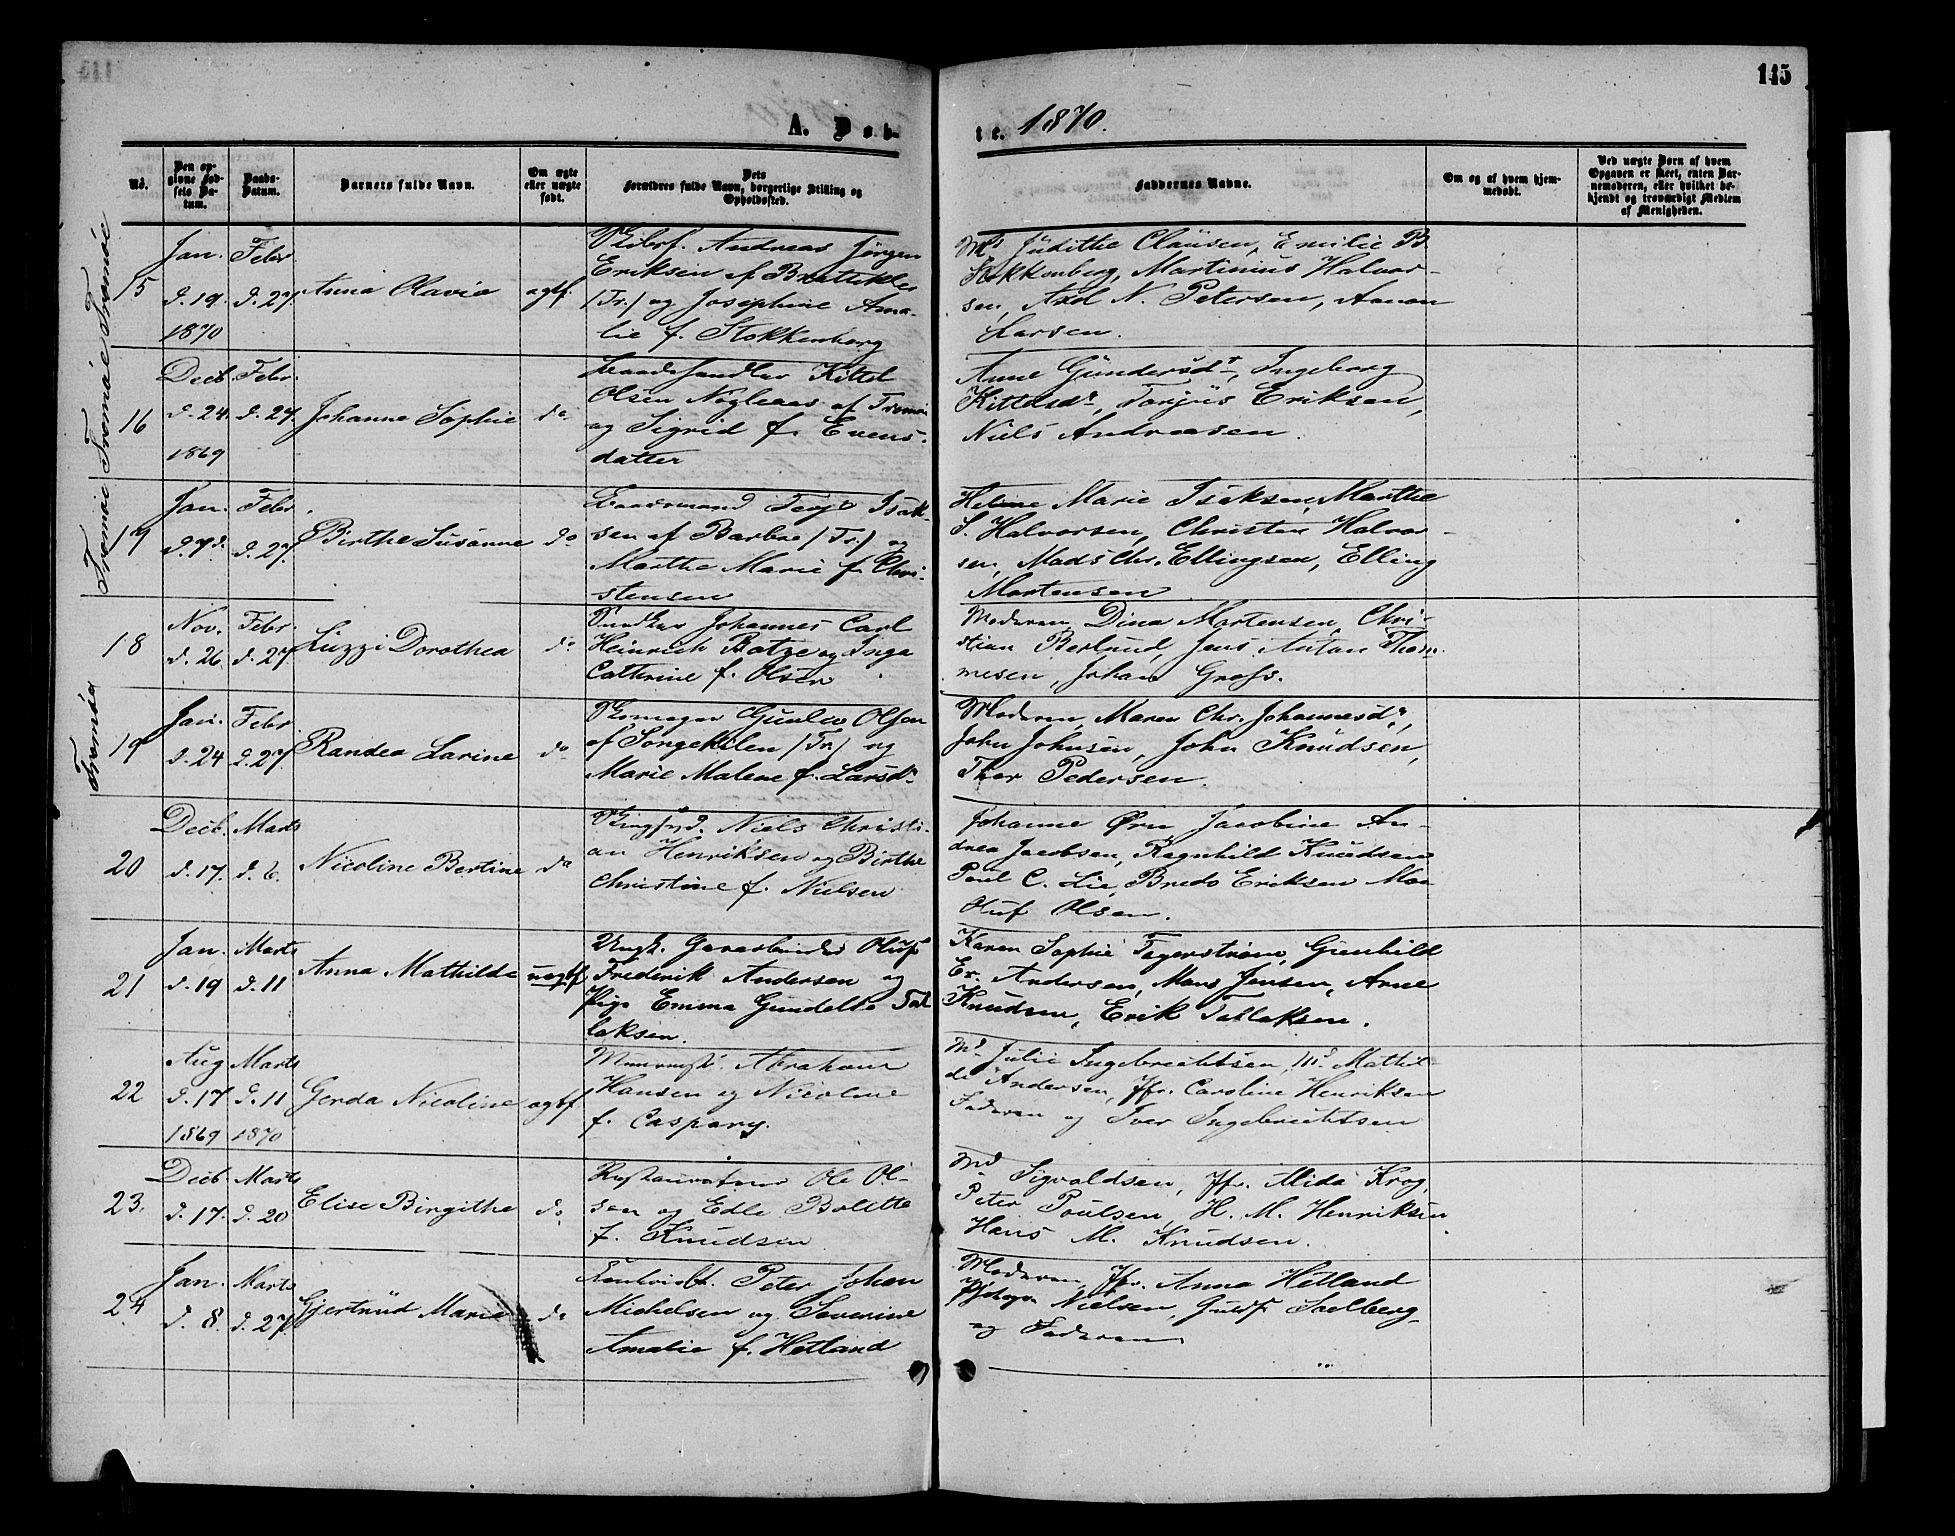 145
A. Døb-
te. 1870.
No.
Den op-
givne Fød-
sels Da-
tum.
Daabs-
Datum.
Barnets fulde Navn.
Om ægte
eller uægte
født.
Dets
Forældres fulde Navn, borgerlige Stilling og
Opholdssted.
Faddernes Navne.
Om og af hvem hjem-
medøbt.
Ved uægte Børn af hvem
Opgaven er skeet, enten Bar-
nemoderen, eller hvilket be-
kjendt og troværdigt Medlem
af Menigheden.
Tromøe
15
Jan.
d. 19.
1870
Febr
d. 27.
Anna Olavia
ægtf.
Skibsf. Andreas Jørgen
Eriksen af Brattekler
(Tr.) og Josephine Ama-
lie f. Stokkenberg
Md Judithe Clausen, Emilie B
Stokkenberg, Martinius Halvor-
sen, Axel N. Petersen, Aanon
Larsen.
Tromøe
16
Decb.
d. 24.
1869
Febr.
d. 27.
Johanne Sophie
do
Kittel
Olsen af Tromøe
og Sigrid f. Evens-
datter
Anne Gundersdr, Ingeborg
Kittelsdr, Torjus Eriksen,
Niels Andreasen.
Tromøe
17
Jan.
d. 7d.
Febr.
d. 27.
Birthe Susanne
do
Baadsmand Terje Isak-
sen af Barbue (Tr.) og
Marthe Marie f. Chri-
stensen
Helene Marie Isaksen, Marthe
S. Halvorsen, Christen Halvor-
sen, Mads Chr. Ellingsen, Elling
Mortensen
18
Nov.
d. 26.
Febr.
d. 27.
Luzzi Dorothea
do
Johannes Carl
Heinrich Batze og Inga
Cathrine f. Olsen
Moderen, Dina Mortensen, Chri-
stian Berlund, Jens Anton Thom-
mesen, Johan Gross.
Tromøe
19
Jan.
d. 24
Febr
d. 27.
Randea Larine
do
Skomager Gunleo Olsen
af Songekilen (Tr.) og
Marie Malene f. Larsdr
Moderen, Maren Chr. Johannesdr,
John Johnsen, John Knudsen,
Thor Pedersen.
20
Decb.
d. 17.
Marts
d. 6.
Nicoline Bertine
do
Niels Christi-
an Henriksen og Birthe
Christine f. Nielsen
Johanne Ørn, Jacobine An-
drea Jacobsen, Ragnhild Knudsen
Poul C. Lie, Bredo Eriksen Moe
Oluf Olsen.
21
Jan.
d. 19
Marts
d. 11
Anna Mathilde
uægtf
Ungk. Oluf
Frederik Andersen og
Pige Emma Gundelle Tal
laksen.
Karen Sophie Fagerstrøm, Gunhild
Er. Andersen, Mons Jensen, Arne
Knudsen, Erik Tallaksen.
22
Aug
d. 17
1869
Marts
d. 11
1870
Gerda Nicoline
ægtf
Abraham
Hansen og Nicoline
f. Caspary.
Md Julie Ingebrechtsen, Md Mathil-
de Andersen, Jfr. Caroline Henriksen
Faderen og Iver Ingebrechtsen
23.
Decb.
d. 17.
Marts
d. 20
Elise Birgithe
do
Restaurateur Ole Ol-
sen og Edle Bolette
f. Knudsen
Md Sigvaldsen, Jfr. Alida Krog,
Peter Poulsen, H. M. Henriksen
Hans M. Knudsen.
24
Jan.
d. 8.
Marts
d. 27.
Gjertrud Marie
do
Peter Johan
Michelsen og Severine
Amalie f. Hetland
Moderen, Jfr. Anna Hetland
Nielsen, Guldsm. Soelberg
og Faderen